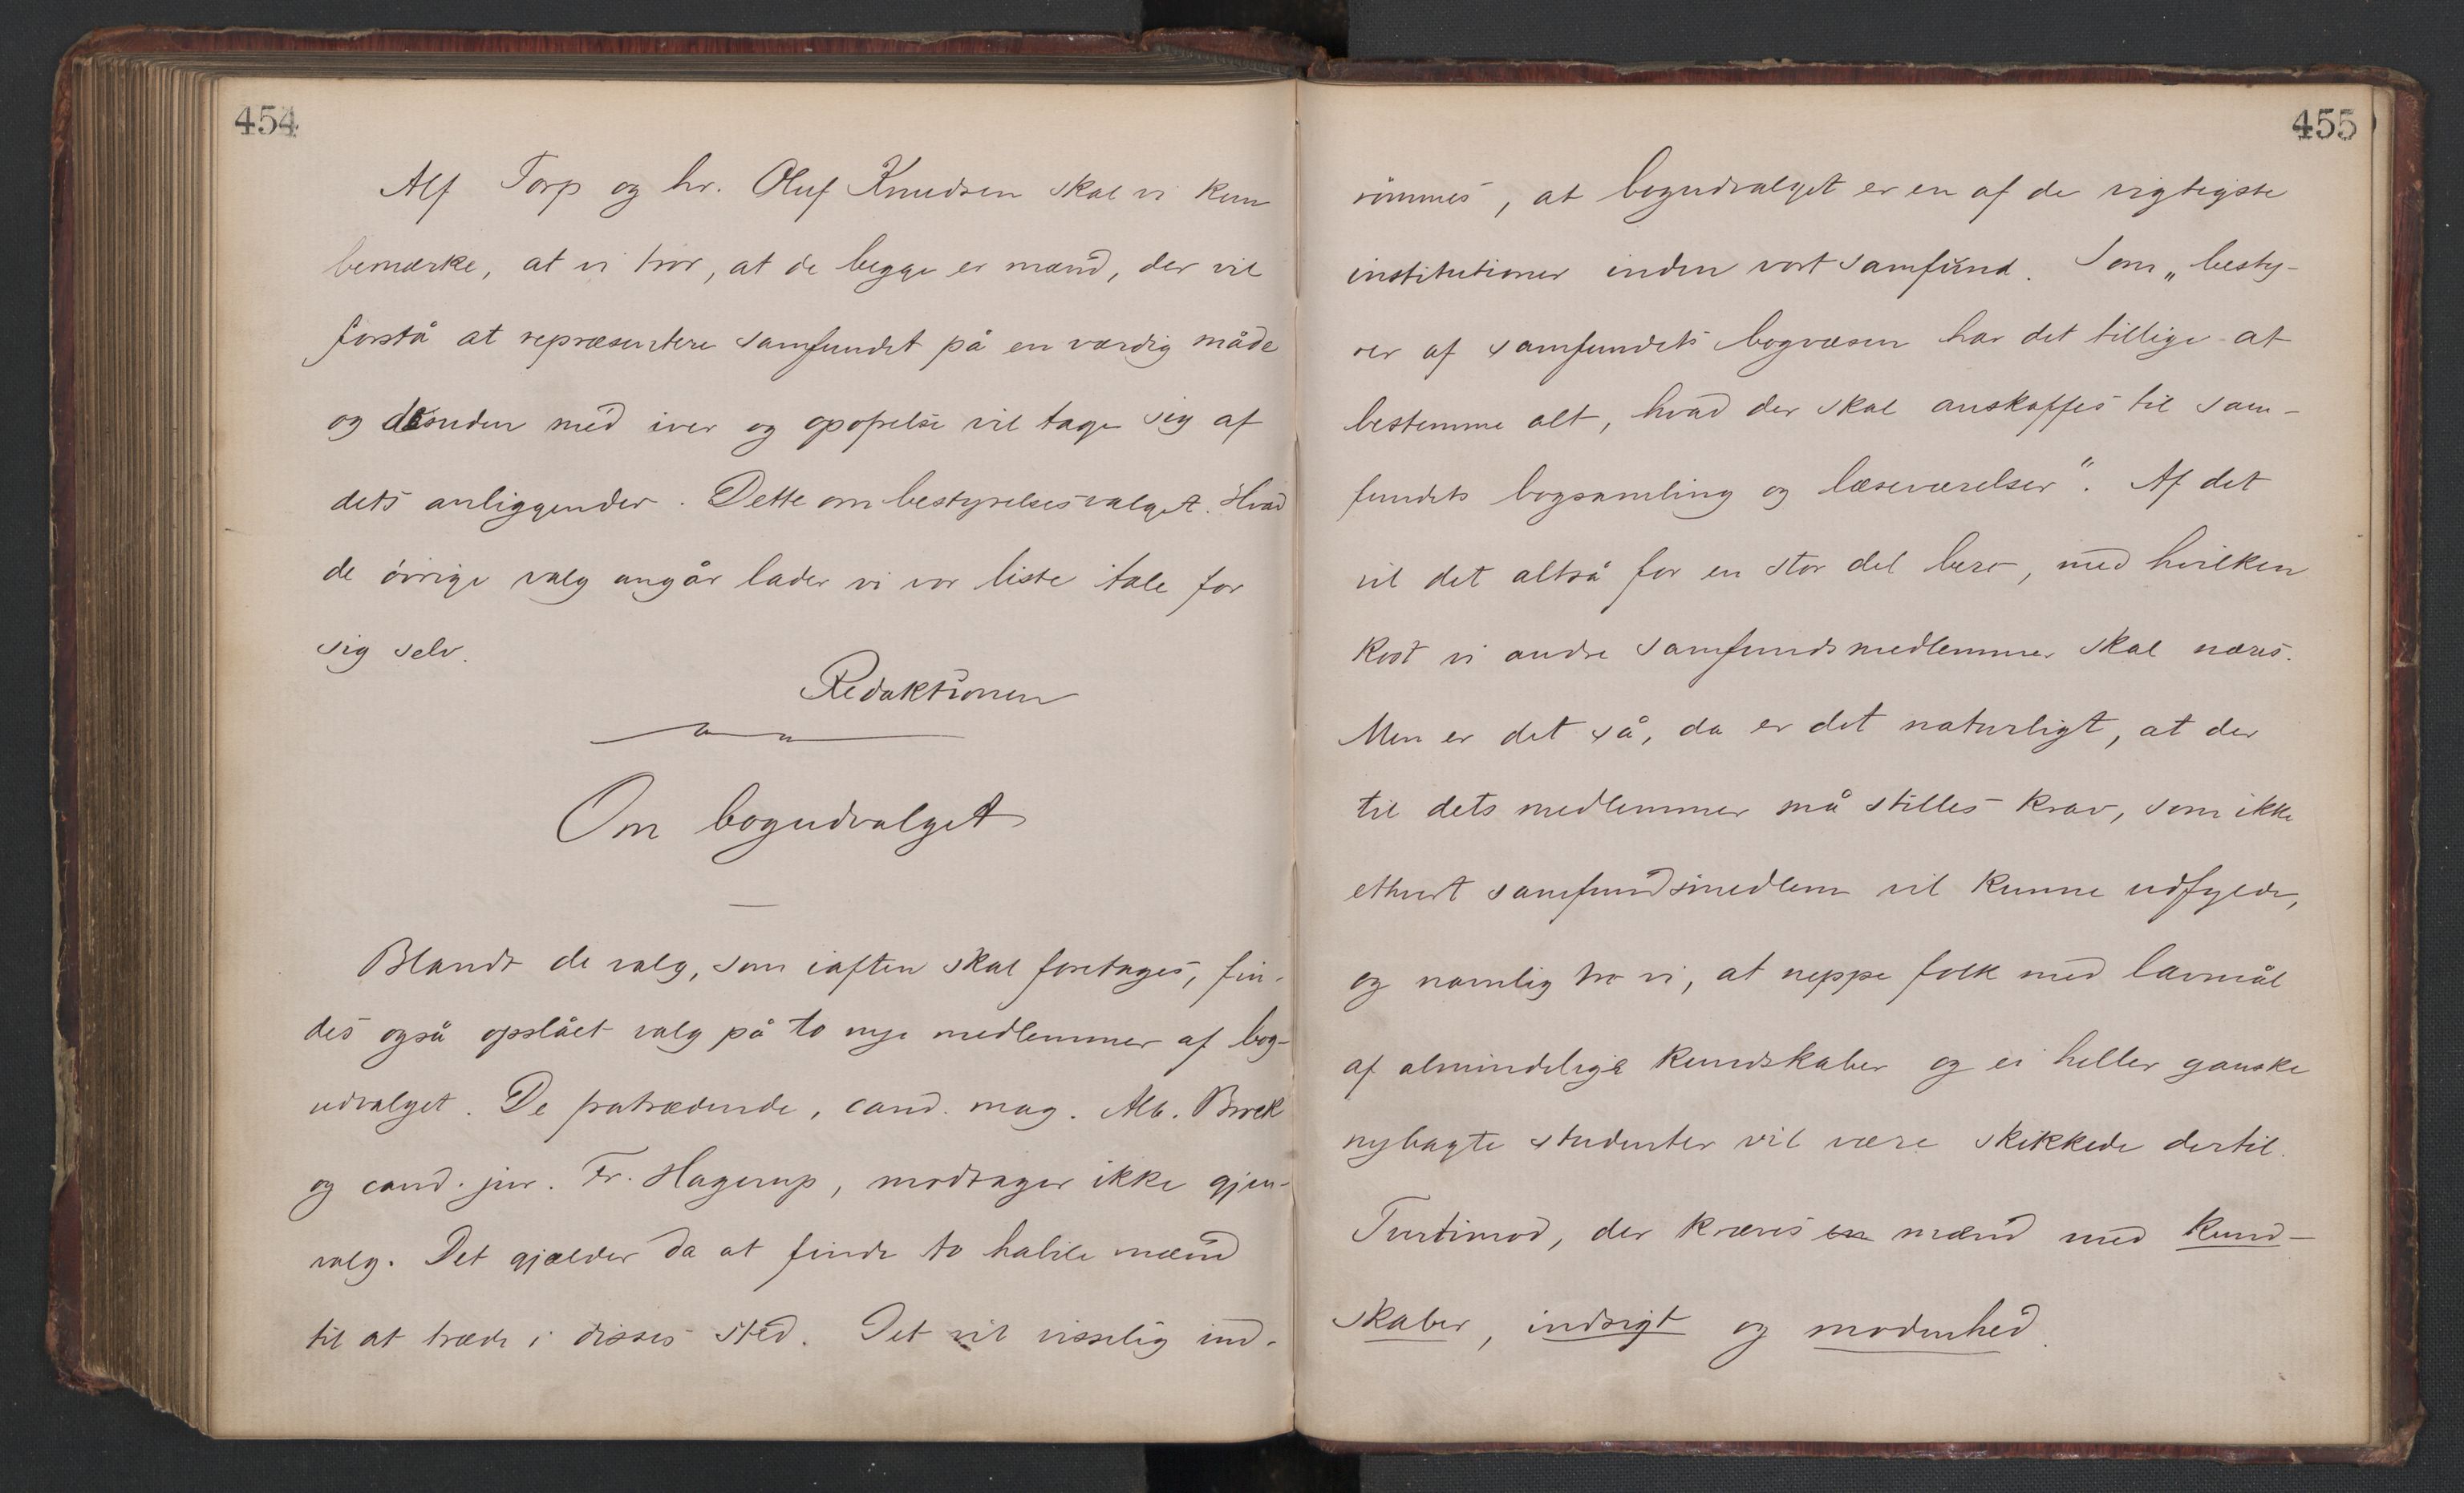 454
Alf Torp og hr. Oluf Knudsen skal vi kun
bemærke, at vi tror, at de begge er mænd, der vil
forstå at repræsentere samfundet på en værdig måde
og desuden med iver og opofrelse vil tage sig af
dets anliggender. Dette om bestyrelsesvalget. Hvad
de övrige valg angår lader vi vor liste tale for
sig selv.
Redaktionen
Om bogudvalget
Blandt de valg, som iaften skal foretages, fin-
des også opslået valg på to nye medlemmer af bog-
udvalget. De fratrædende, cand. mag. Alb. Brock
og cand. jur. Fr. Hagerup, modtager ikke gjen-
valg. Det gjælder da at finde to habile mænd
til at træde i disses sted. Det vil visselig ind-
455
römmes, at bogudvalget er en af de vigtigste
institutioner inden vort samfund. Som „besty-
rer af samfundets bogvæsen har det tillige at
bestemme alt, hvad der skal anskaffes til sam-
fundets bogsamling og læseværelser". Af det
vil det altså for en stor del bero, med hvilken
kost vi andre samfundsmedlemmer skal næres.
Men er det så, da er det naturligt, at der
til dets medlemmer må stilles krav, som ikke
ethvert samfundsmedlem vil kunne udfylde,
og navnlig tro vi, at neppe folk med lavmål
af almindelige kundskaber og ei heller ganske
nybagte studenter vil være skikkede dertil.
Tvertimod, der kræves en mænd med kund-
skaber, indsigt og modenhed.